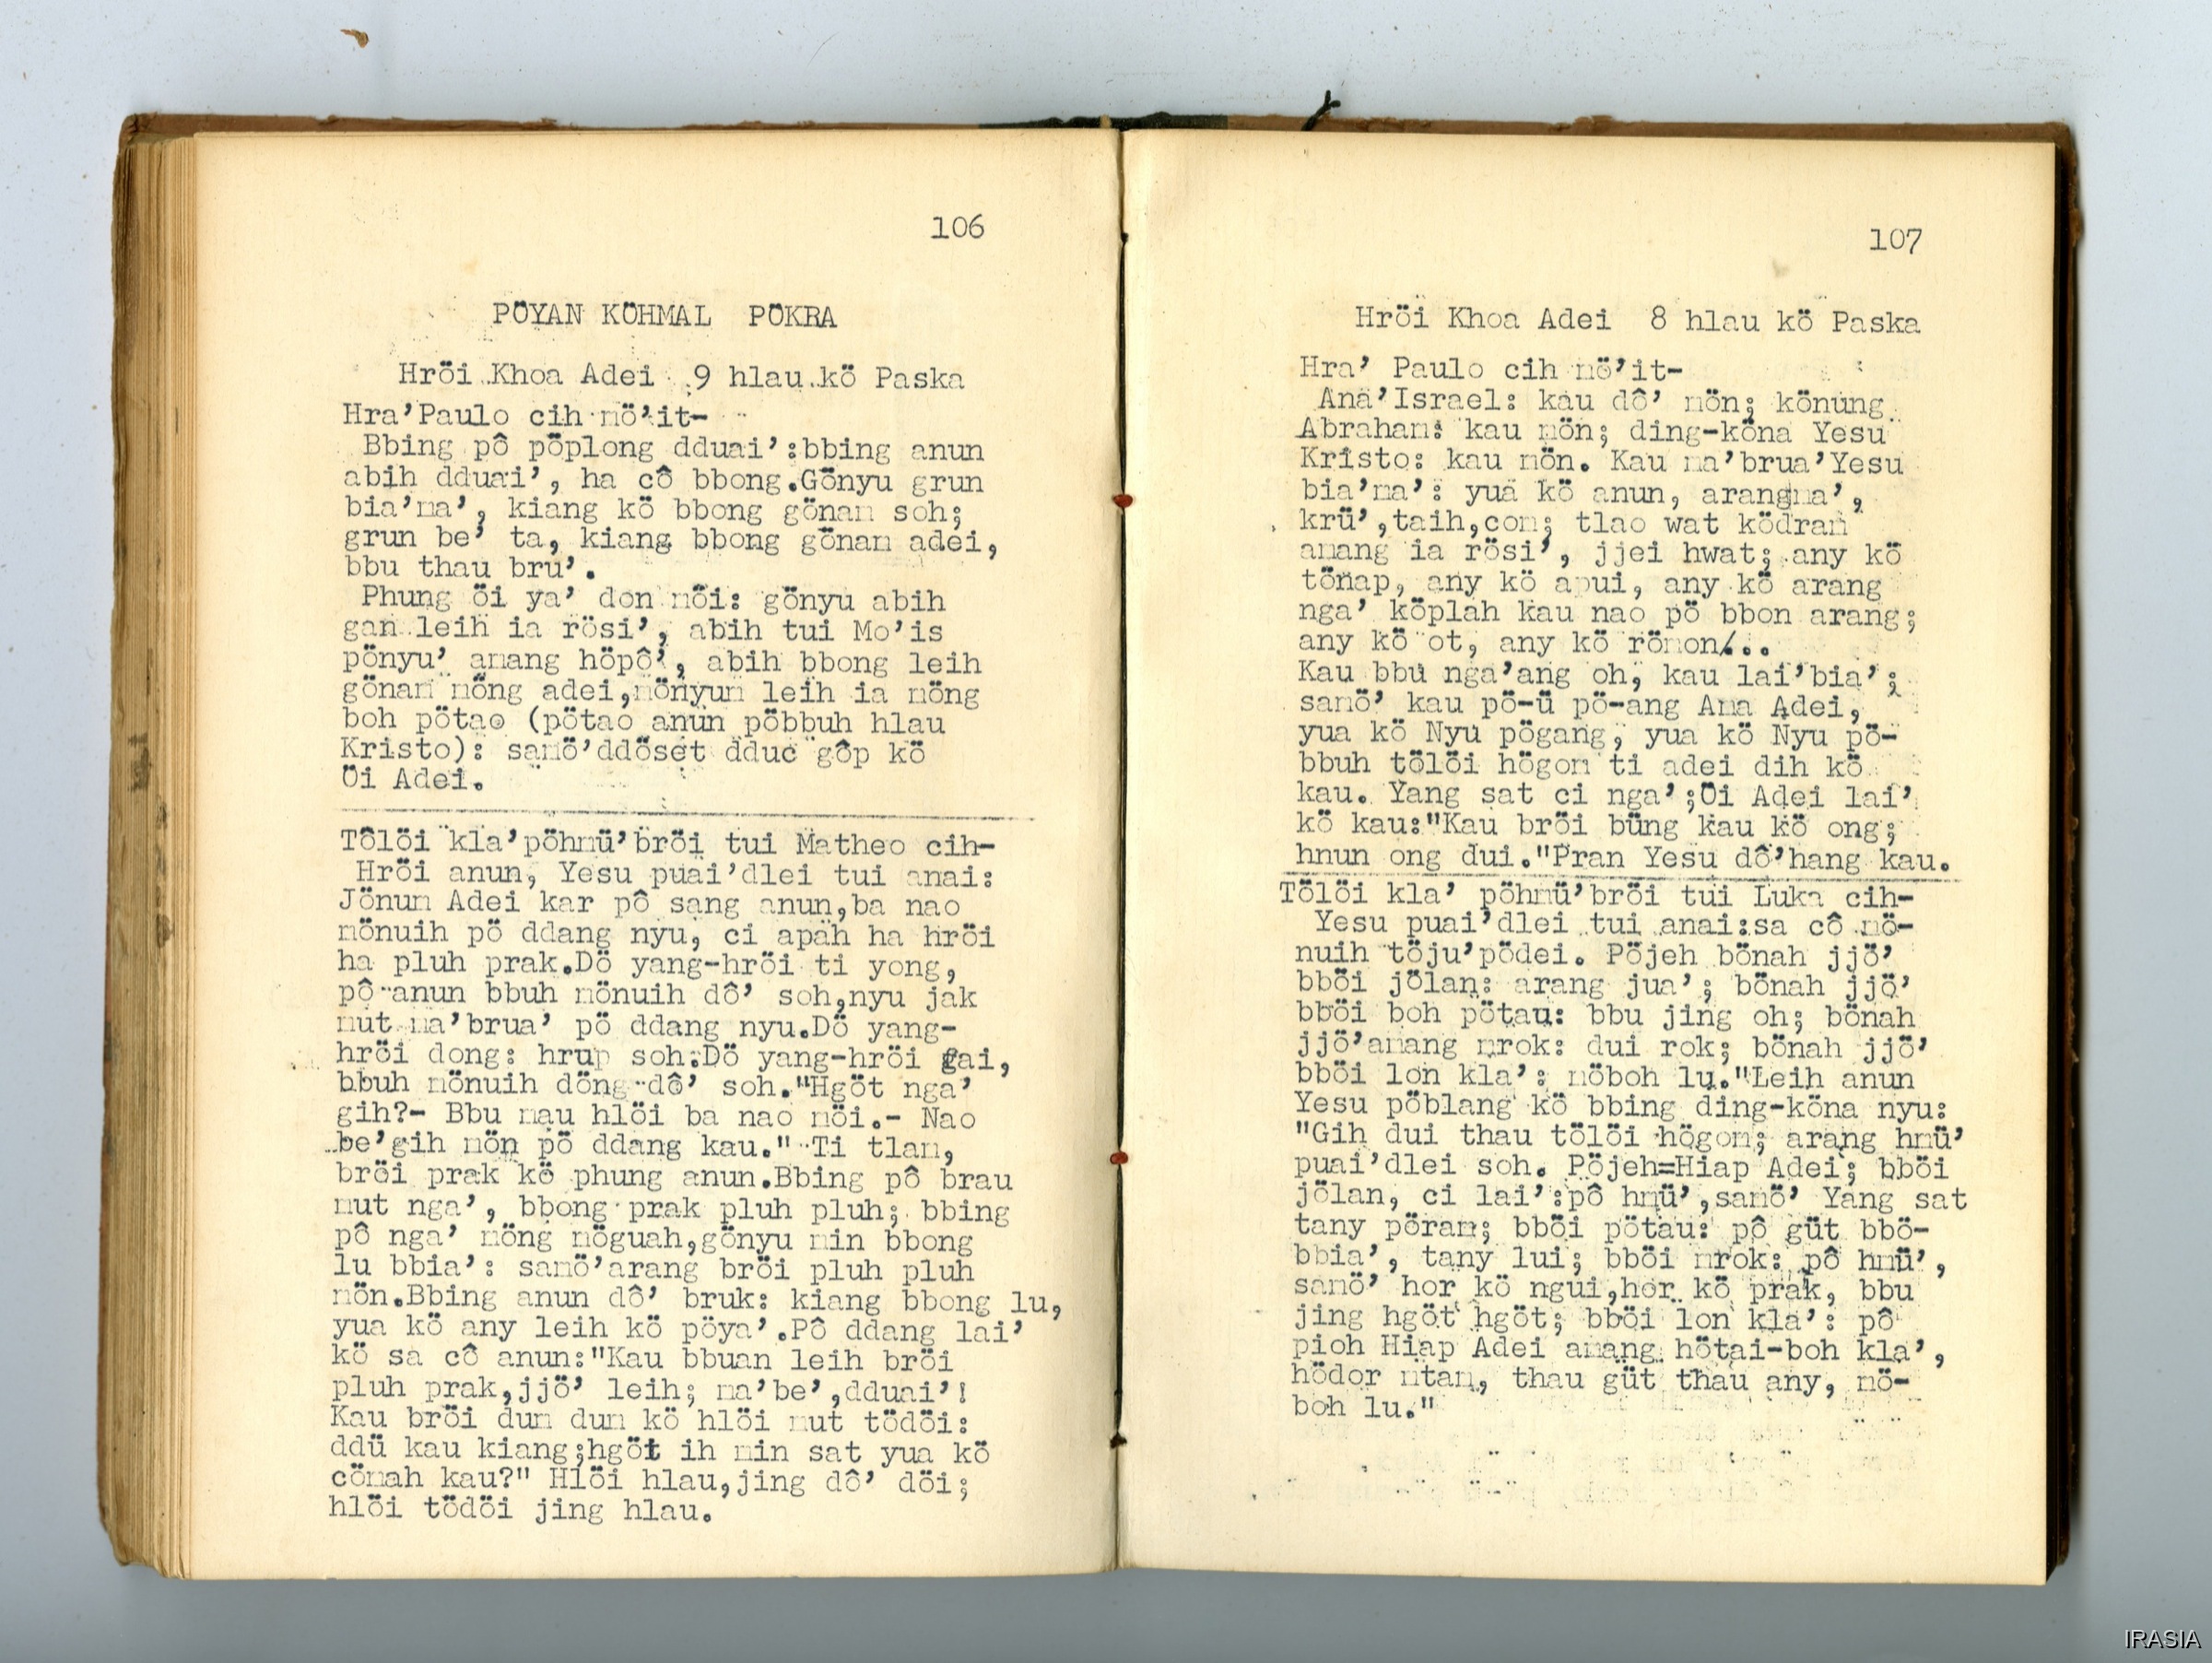 106
PÖYAN KÖHMAL PÖKRA
Hröi Khoa Adei 9 hlau kö Paska
Hra’Paulo cih mö’it-
Bbing pô pöplong dduai’:bbing anun
abih dduai’, ha cô bbong.Gönyu grun
bia’ma’, kiang kö bbong gönam soh;
grun be’ ta, kiang bbong gönam adei,
bbu thau bru’.
Phung öi ya’ don möi: gönyu abih
gan leih ia rösi’, abih tui Mo’is
pönyu’ amang höpô’, abih bbong leih
gönam möng adei,mönyum leih ia möng
boh pötao (pötao anun pöbbuh hlau
Kristo): samö’ddöset dduc gôp kö
Öi Adei.
Tôlöi kla’pöhmü’bröi tui Matheo cih-
Hröi anun, Yesu puai’dlei tui anai:
Jönum Adei kar pô sang anun,ba nao
mönuih pö ddang nyu, ci apah ha hröi
ha pluh prak.Dö yang-hröi ti yong,
pô anun bbuh mönuih dô’ soh,nyu jak
mut ma’brua’ pö ddang nyu.Dö yang-
hröi dong: hrup soh.Dö yang-hröi gai,
bbuh mönuih döng dô’ soh."Hgöt nga’
gih?- Bbu mau hlöi ba nao möi.- Nao
be’gih mön pö ddang kau." Ti tlam,
bröi prak kö phung anun.Bbing pô brau
mut nga’, bbong prak pluh pluh; bbing
pô nga’ möng möguah,gönyu min bbong
lu bbia’: samö’arang bröi pluh pluh
mön.Bbing anun dô’ bruk: kiang bbong lu,
yua kö any leih kö pöya’.Pô ddang lai’
kö sa cô anun:"Kau bbuan leih bröi
pluh prak,jjö’ leih; ma’be’,dduai’!
Kau bröi dum dum kö hlöi mut tödöi:
ddü kau kiang;hgöt ih min sat yua kö
cömah kau?" Hlöi hlau,jing dô’ döi;
hlöi tödöi jing hlau.
107
Hröi Khoa Adei 8 hlau kö Paska
Hra’ Paulo cih mö’it-
Ana’Israel: kau dô’ mön; könung
Abraham: kau mön; ding-köna Yesu
Kristo: kau mön. Kau ma’brua’Yesu
bia’ma’: yua kö anun, arangma’,
krü’,taih,com; tlao wat ködram
amang ia rösi’, jjei hwat; any kö
tönap, any kö apui, any kö arang
nga’ köplah kau nao pö bbon arang;
any kö ot, any kö römon/..
Kau bbu nga’ang oh, kau lai’bia’;
samö’ kau pö-ü pö-ang Ama Adei,
yua kö Nyu pögang, yua kö Nyu pö-
bbuh tölöi högom ti adei dih kö
kau. Yang sat ci nga’;Öi Adei lai’
kö kau:"Kau bröi büng kau kö ong;
hnun ong dui."Pran Yesu dô’hang kau.
Tölöi kla’ pöhmü’bröi tui Luka cih-
Yesu puai’dlei tui anai:sa cô mö-
nuih töju’pödei. Pöjeh bönah jjö’
bböi jölan: arang jua’; bönah jjö’
bböi boh pötau: bbu jing oh; bönah
jjö’amang mrok: dui rok; bönah jjö’
bböi lon kla’: möboh lu."Leih anun
Yesu pöblang kö bbing ding-köna nyu:
"Gih dui thau tölöi högom; arang hmü’
puai’dlei soh. Pöjeh=Hiap Adei; bböi
jölan, ci lai’:pô hmü’,samö’ Yang sat
tany pöram; bböi pötau: pô güt bbö-
bbia’, tany lui; bböi mrok: pô hmü’,
samö’ hor kö ngui,hor kö prak, bbu
jing hgöt hgöt; bböi lon kla’: pô
pioh Hiap Adei amang hötai-boh kla’,
hödor mtam, thau güt thau any, mö-
boh lu."
IRASIA